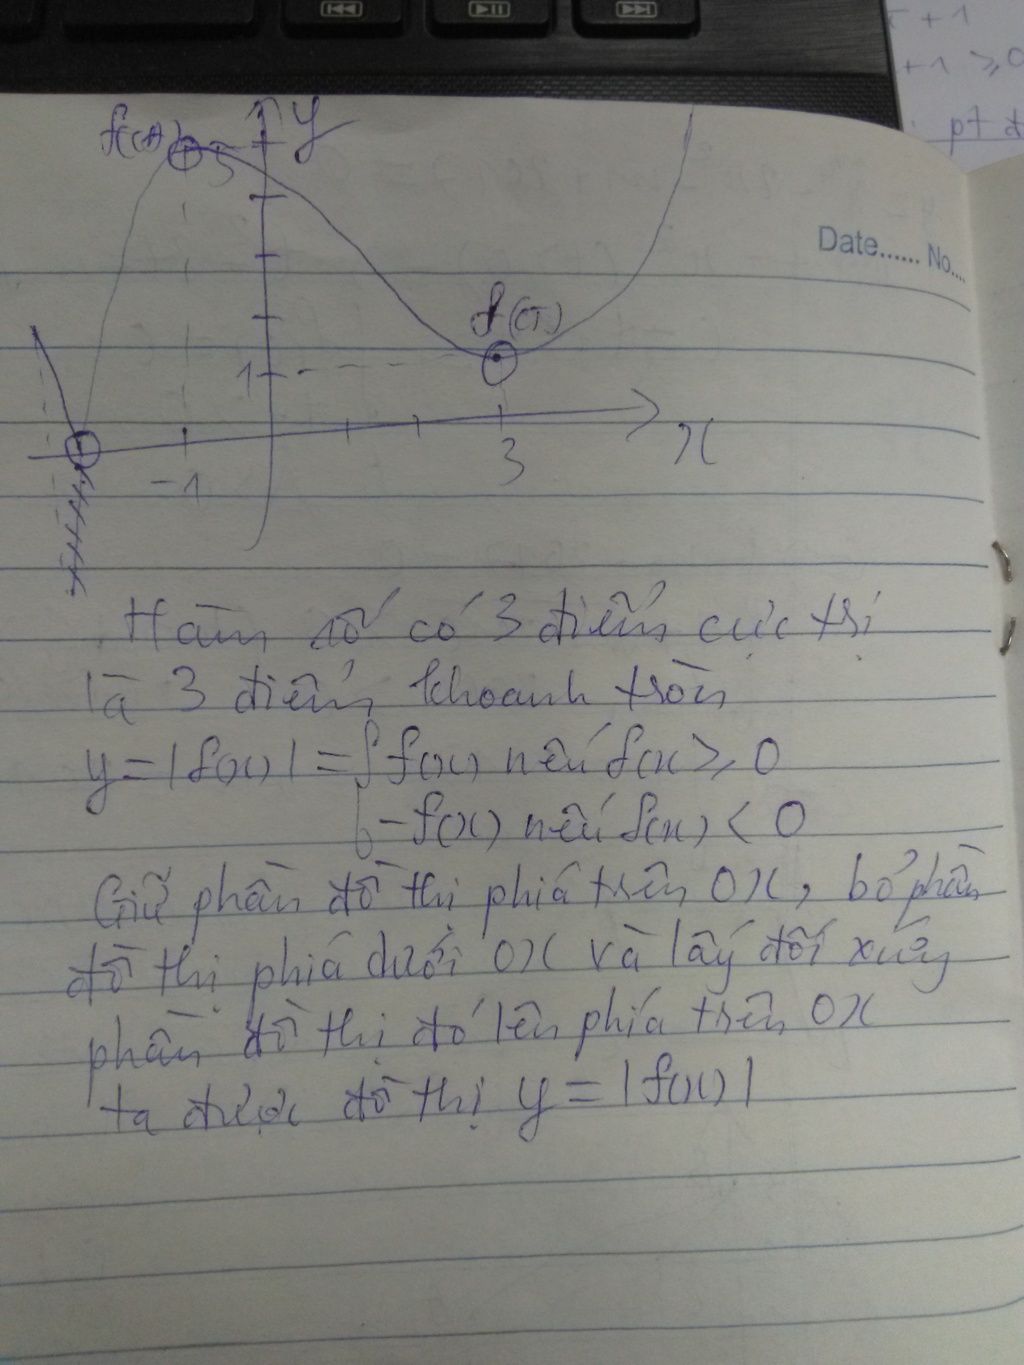 x + 1
+ 1 ≥ 0
pt
f(CĐ)
5
y
Date...... No....
f(CT)
1
-1
3
x
Hàm số có 3 điểm cực trị
là 3 điểm khoanh tròn
y = |f(x)| = { f(x) nếu f(x) ≥ 0
-f(x) nếu f(x) < 0
Giữ phần đồ thị phía trên Ox, bỏ phần
đồ thị phía dưới Ox và lấy đối xứng
phần đồ thị đó lên phía trên Ox
ta được đồ thị y = |f(x)|